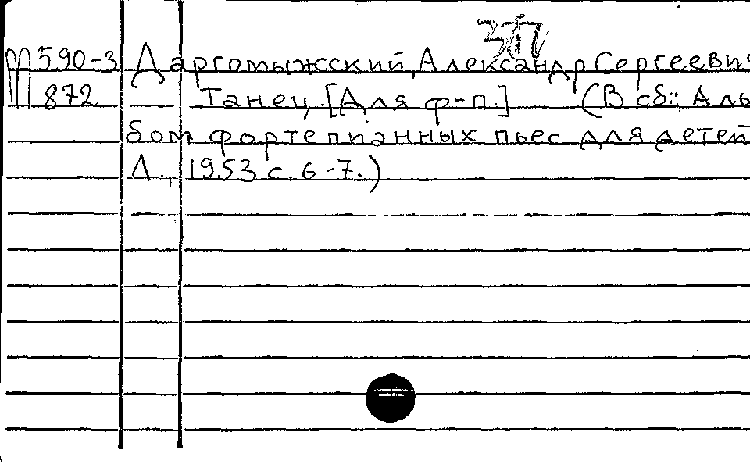 М590-3 Даргомыжский, Александр Сергеевич
872 — Танец [Для ф-п.] (В сб.: Аль
бом фортепианных пьес для детей
Л., 1953 с. 6-7.)